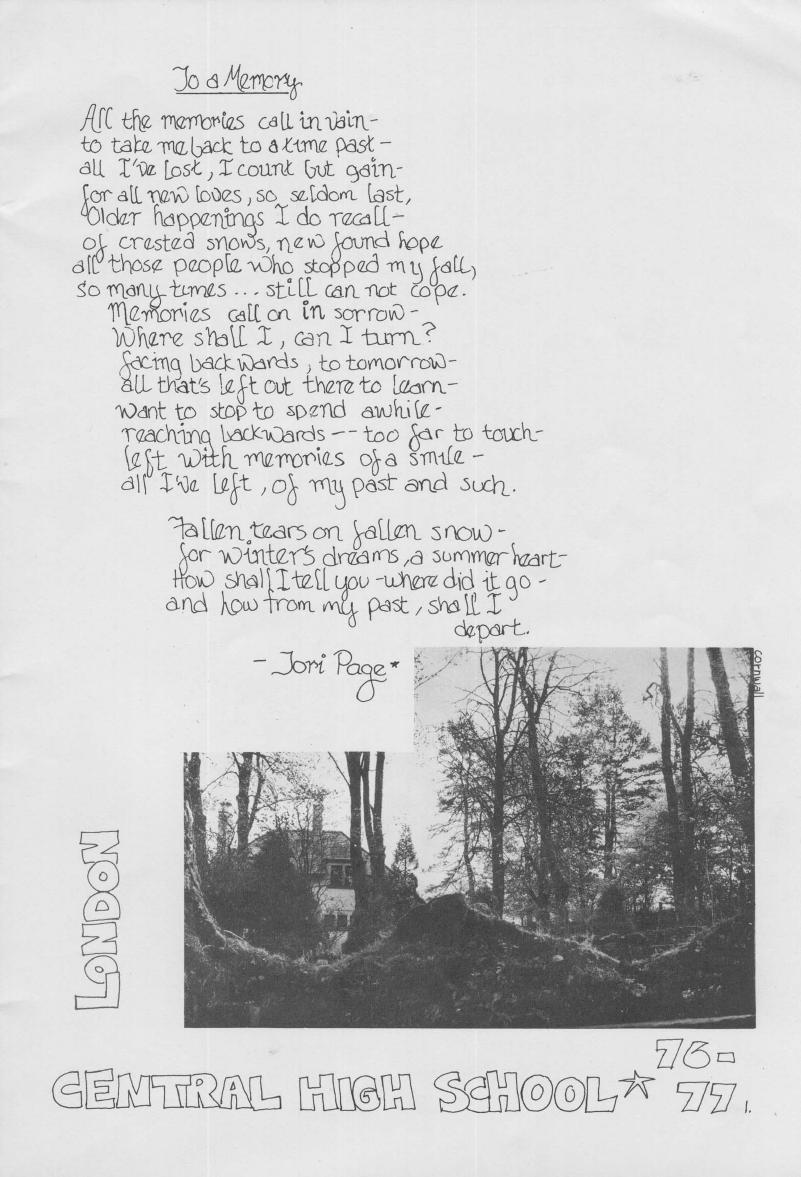 To a Memory
All the memories call in vain-
to take me back to a time past-
all I've lost, I count but gain-
for all new loves, so seldom last,
Older happenings I do recall-
of crested snows, new found hope
all those people who stopped my fall,
so many times ... still can not cope.
Memories call on in sorrow-
Where shall I, can I turn?
facing backwards, to tomorrow-
all that's left out there to learn-
want to stop to spend awhile-
reaching backwards -- too far to touch-
left with memories of a smile-
all I've left, of my past and such.
Fallen tears on fallen snow-
for winter's dreams, a summer heart-
How shall I tell you -where did it go-
and how from my past, shall I
depart.
- Jori Page*
cornwall
LONDON
76-
CENTRAL HIGH SCHOOL* 77
1.